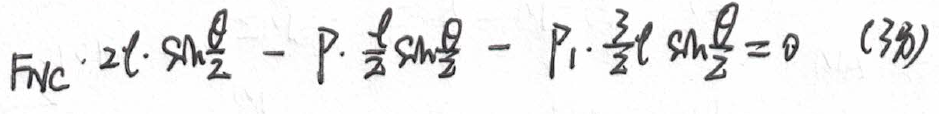 F_{NC} · 2l · sin\frac{θ}{2} - P · \frac{l}{2} sin\frac{θ}{2} - P_1 · \frac{3}{2} l sin\frac{θ}{2} = 0 (3分)